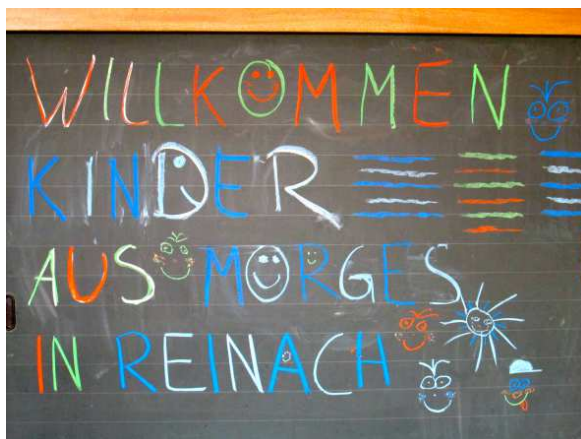 WILLKOMMEN
KINDER
AUS MORGES
IN REINACH